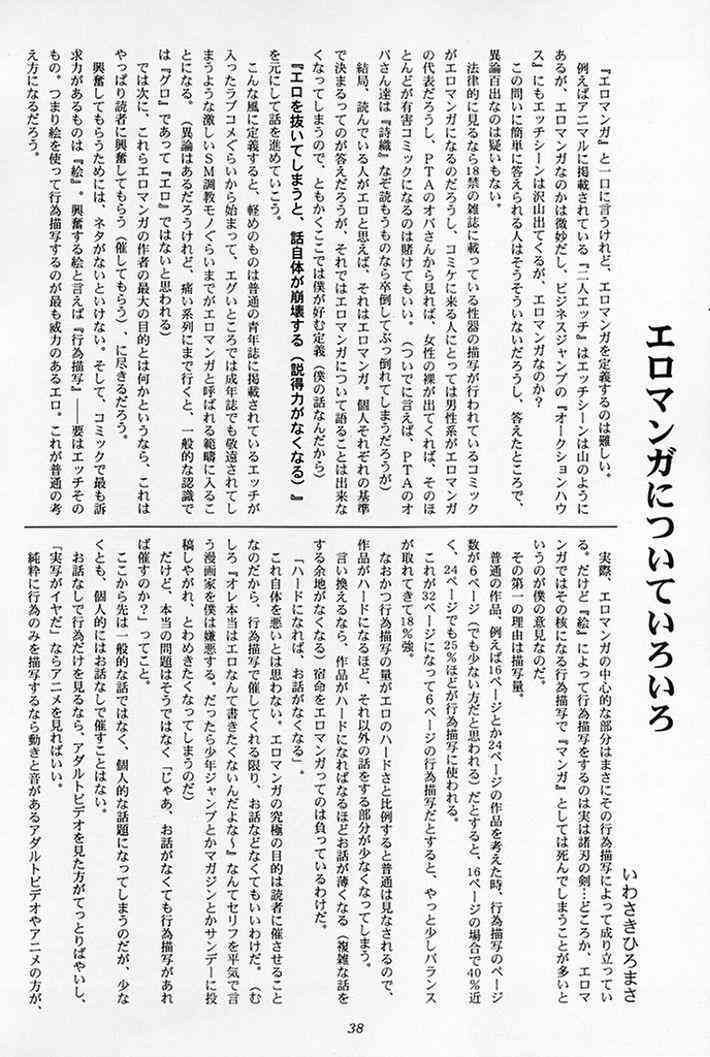 エロマンガについていろいろ
いわさきひろまさ
『エロマンガ』と一口に言うけれど、エロマンガを定義するのは難しい。
例えばアニマルに掲載されている『二人エッチ』はエッチシーンは山のように
あるが、エロマンガなのかは微妙だし、ビジネスジャンプの『オークションハウ
ス』にもエッチシーンは沢山出てくるが、エロマンガなのか？
この問いに簡単に答えられる人はそうそういないだろうし、答えたところで、
異論百出なのは疑いもない。
法律的に見るなら18禁の雑誌に載っている性器の描写が行われているコミック
がエロマンガになるのだろうし、コミケに来る人にとっては男性系がエロマンガ
の代表だろうし、ＰＴＡのオバさんから見れば、女性の裸が出てくれば、そのほ
とんどが有害コミックになるのは賭けてもいい。（ついでに言えば、ＰＴＡのオ
バさん達は『詩織』なぞ読もうものなら卒倒してぶっ倒れてしまうだろうが）
結局、読んでいる人がエロと思えば、それはエロマンガ。個人それぞれの基準
で決まるってのが答えだろうが、それではエロマンガについて語ることは出来な
くなってしまうので、ともかくここでは僕が好む定義（僕の話なんだから）
『エロを抜いてしまうと、話自体が崩壊する（説得力がなくなる）』
を元にして話を進めていこう。
こんな風に定義すると、軽めのものは普通の青年誌に掲載されているエッチが
入ったラブコメぐらいから始まって、エグいところでは成年誌でも敬遠されてし
まうような激しいＳＭ調教モノぐらいまでがエロマンガと呼ばれる範疇に入るこ
とになる。（異論はあるだろうけれど、痛い系列にまで行くと、一般的な認識で
は『グロ』であって『エロ』ではないと思われる）
では次に、これらエロマンガの作者の最大の目的とは何かというなら、これは
やっぱり読者に興奮してもらう（催してもらう）、に尽きるだろう。
興奮してもらうためには、ネタがないといけない。そして、コミックで最も訴
求力があるものは『絵』。興奮する絵と言えば『行為描写』――要はエッチその
もの。つまり絵を使って行為描写するのが最も威力のあるエロ。これが普通の考
え方になるだろう。
実際、エロマンガの中心的な部分はまさにその行為描写によって成り立ってい
る。だけど『絵』によって行為描写をするのは実は諸刃の剣…どころか、エロマ
ンガではその核になる行為描写で『マンガ』としては死んでしまうことが多いと
いうのが僕の意見なのだ。
その第一の理由は描写量。
普通の作品、例えば16ページとか24ページの作品を考えた時、行為描写のページ
数が６ページ（でも少ない方だと思われる）だとすると、16ページの場合で40％近
く、24ページでも25％ほどが行為描写に使われる。
これが32ページになって６ページの行為描写だとすると、やっと少しバランス
が取れてきて18％強。
なおかつ行為描写の量がエロのハードさと比例すると普通は見なされるので、
作品がハードになるほど、それ以外の話をする部分が少なくなってしまう。
言い換えるなら、作品がハードになればなるほどお話が薄くなる（複雑な話を
する余地がなくなる）宿命をエロマンガってのは負っているわけだ。
「ハードになれば、お話がなくなる」。
これ自体を悪いとは思わない。エロマンガの究極の目的は読者に催させること
なのだから、行為描写で催してくれる限り、お話などなくてもいいわけだ。（む
しろ『オレ本当はエロなんて書きたくないんだよな～』なんてセリフを平気で言
う漫画家を僕は嫌悪する。だったら少年ジャンプとかマガジンとかサンデーに投
稿しやがれ、とわめきたくなってしまうのだ）
だけど、本当の問題はそうではなく「じゃあ、お話がなくても行為描写があれ
ば催すのか？」ってこと。
ここから先は一般的な話ではなく、個人的な話題になってしまうのだが、少な
くとも、個人的にはお話なしで催すことはない。
お話なしで行為だけを見るなら、アダルトビデオを見た方がてっとりばやいし、
「実写がイヤだ」ならアニメを見ればいい。
純粋に行為のみを描写するなら動きと音があるアダルトビデオやアニメの方が、
38